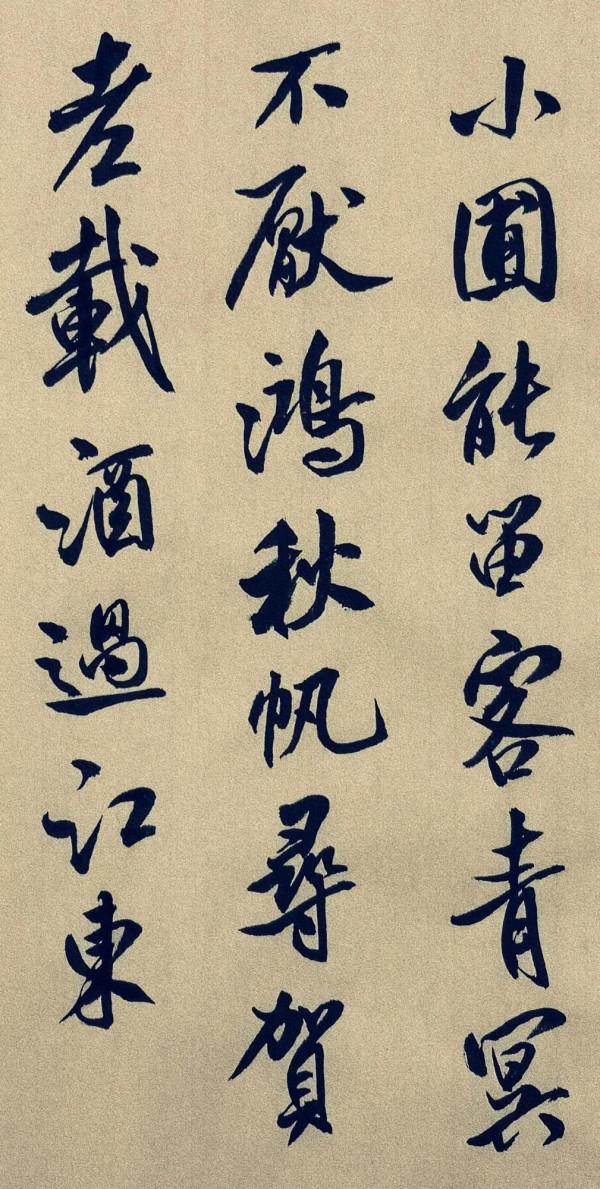 小圃能留客青冥
不厭鴻秋帆尋賀
老載酒過江東